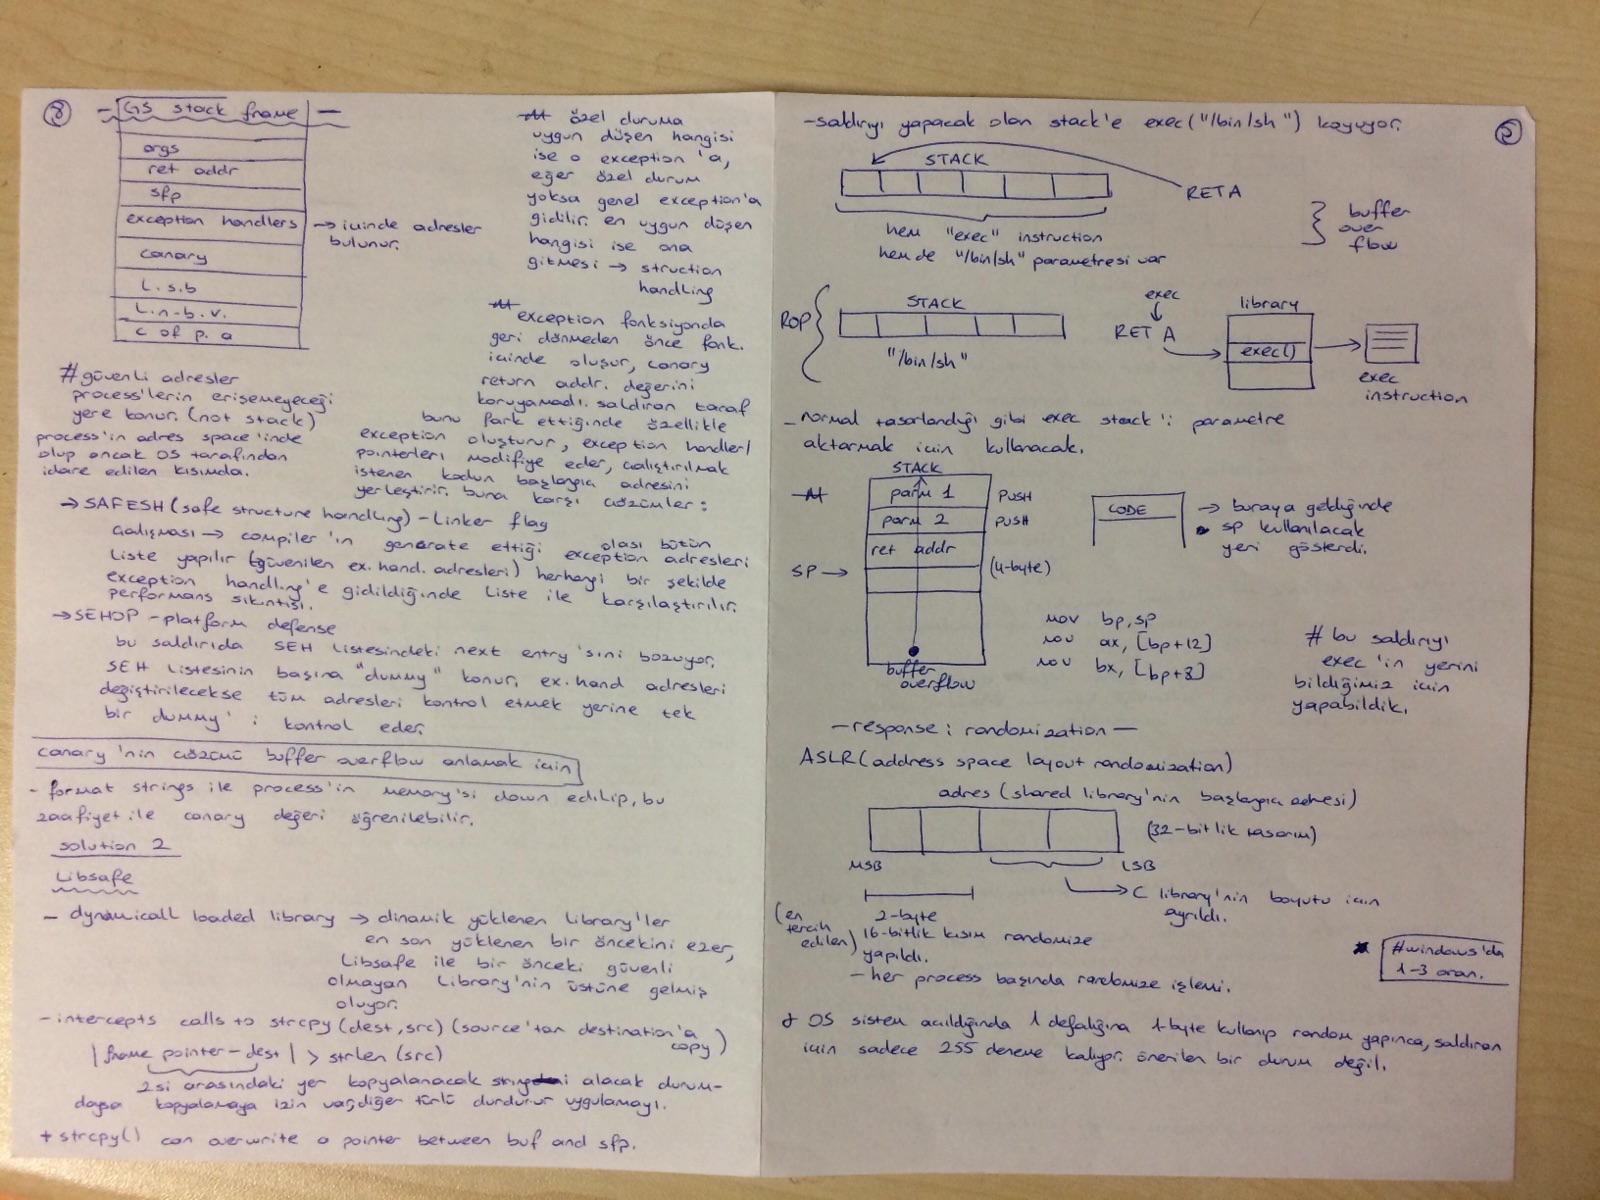 8
- GS stack frame -
args
ret addr
sfp
exception handlers → içinde adresler
bulunur.
canary
L.s.b
L.n-b.v.
c of p.a
özel duruma
uygun düşen hangisi
ise o exception'a,
eğer özel durum
yoksa genel exception'a
gidilir. en uygun düşen
hangisi ise ona
gitmesi → struction
handling
exception fonksiyonda
geri dönmeden önce fonk.
içinde oluşur, canary
return addr. değerini
koruyamadı. saldıran taraf
bunu fark ettiğinde özellikle
exception oluşturur, exception handler/
pointerleri modifiye eder, çalıştırılmak
istenen kodun başlangıç adresini
yerleştirir. buna karşı çözümler:
# güvenli adresler
process'lerin erişemeyeceği
yere konur. (not stack)
process'in adres space'inde
olup ancak OS tarafından
idare edilen kısımda.
→ SAFESH (safe structure handling) - Linker flag
çalışması → compiler'ın generate ettiği olası bütün
exception adresleri
liste yapılır (güvenilen ex. hand. adresleri) herhangi bir şekilde
exception handling'e gidildiğinde liste ile karşılaştırılır.
performans sıkıntısı.
→ SEHOP - platform defense
bu saldırıda SEH listesindeki next entry'sini bozuyor.
SEH listesinin başına "dummy" konur. ex. hand adresleri
değiştirilecekse tüm adresleri kontrol etmek yerine tek
bir dummy'i kontrol eder.
canary'nin çözümü buffer overflow anlamak için
- format strings ile process'in memory'si down edilip, bu
zaafiyet ile canary değeri öğrenilebilir.
solution 2
Libsafe
- dynamicall loaded library → dinamik yüklenen library'ler
en son yüklenen bir öncekini ezer,
Libsafe ile bir önceki güvenli
olmayan Library'nin üstüne gelmiş
oluyor.
- intercepts calls to strcpy (dest, src) (source'tan destination'a
copy)
| frame pointer - dest | > strlen (src)
2si arasındaki yer kopyalanacak alacak durum-
daysa kopyalamaya izin var, diğer türlü durdurur uygulamayı.
+ strcpy() can overwrite a pointer between buf and sfp.
- saldırıyı yapacak olan stack'e exec("/bin/sh") koyuyor.
STACK
RET A
hem "exec" instruction
hem de "/bin/sh" parametresi var
buffer
over
flow
ROP
STACK
"/bin/sh"
exec
RET A
library
exec()
exec
instruction
- normal tasarlandığı gibi exec stack'i parametre
aktarmak için kullanacak.
STACK
parm 1 PUSH
parm 2 PUSH
ret addr
SP → (4-byte)
buffer
overflow
CODE
→ buraya geldiğinde
sp kullanılacak
yeri gösterdi.
mov bp, sp
mov ax, [bp+12]
mov bx, [bp+8]
# bu saldırıyı
exec'in yerini
bildiğimiz için
yapabildik.
- response: randomization -
ASLR (address space layout randomization)
adres (shared library'nin başlangıç adresi)
(32-bitlik tasarım)
MSB LSB
→ C library'nin boyutu için
ayrıldı.
(en
tercih
edilen)
2-byte
16-bitlik kısım randomize
yapıldı.
- her process başında randomize işlemi.
# windows'da
1-3 oran.
OS sistem açıldığında 1 defalığına 1-byte kullanıp random yapınca, saldıran
için sadece 255 deneme kalıyor. önerilen bir durum değil.